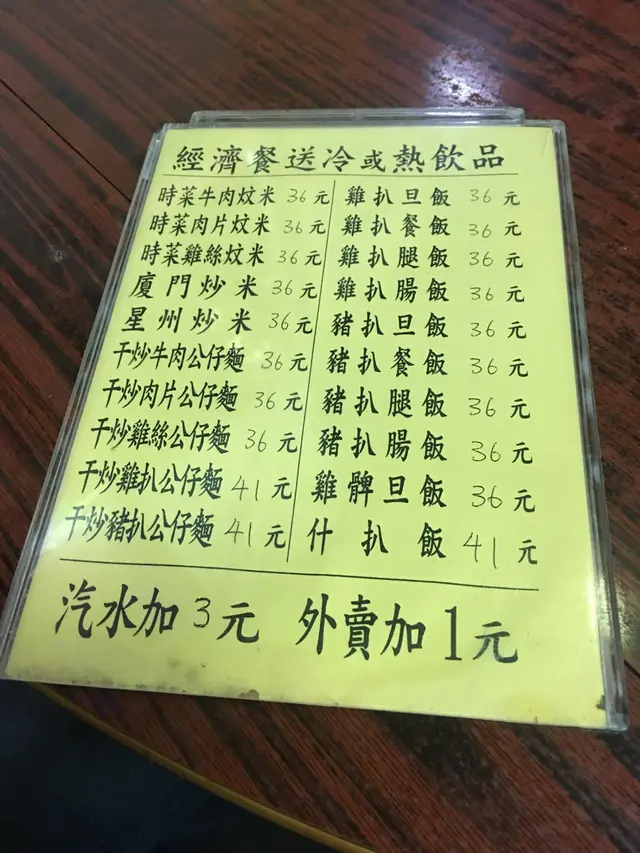 經濟餐送冷或熱飲品
時菜牛肉炆米 36元
時菜肉片炆米 36元
時菜雞絲炆米 36元
廈門炒米 36元
星州炒米 36元
干炒牛肉公仔麵 36元
干炒肉片公仔麵 36元
干炒雞絲公仔麵 36元
干炒雞扒公仔麵 41元
干炒豬扒公仔麵 41元
雞扒旦飯 36元
雞扒餐飯 36元
雞扒腿飯 36元
雞扒腸飯 36元
豬扒旦飯 36元
豬扒餐飯 36元
豬扒腿飯 36元
豬扒腸飯 36元
雞髀旦飯 36元
什扒飯 41元
汽水加3元 外賣加1元